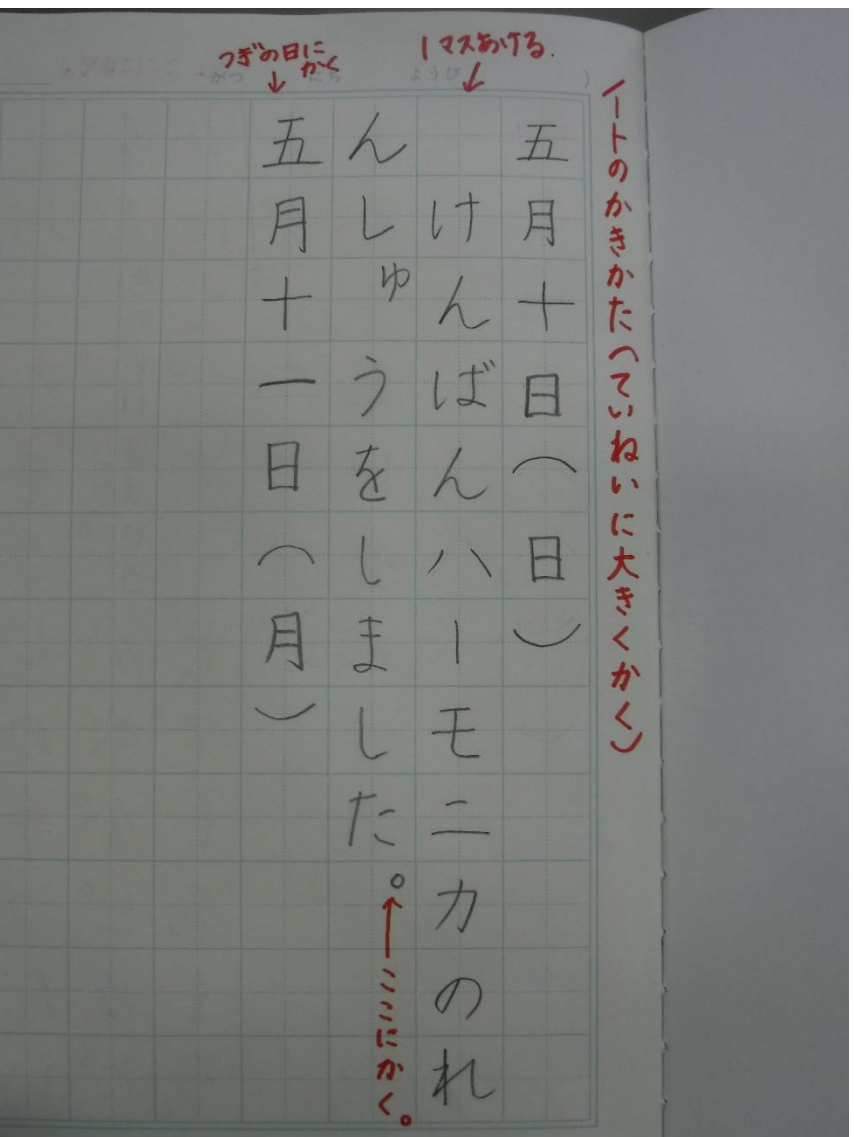 ノートのかきかた(ていねいに大きくかく)
1マスあける.
五月十日(日)
けんばんハーモニカのれ
んしゅうをしました。
ここにかく。
つぎの日に
かく
五月十一日(月)
ようび
がつ
)